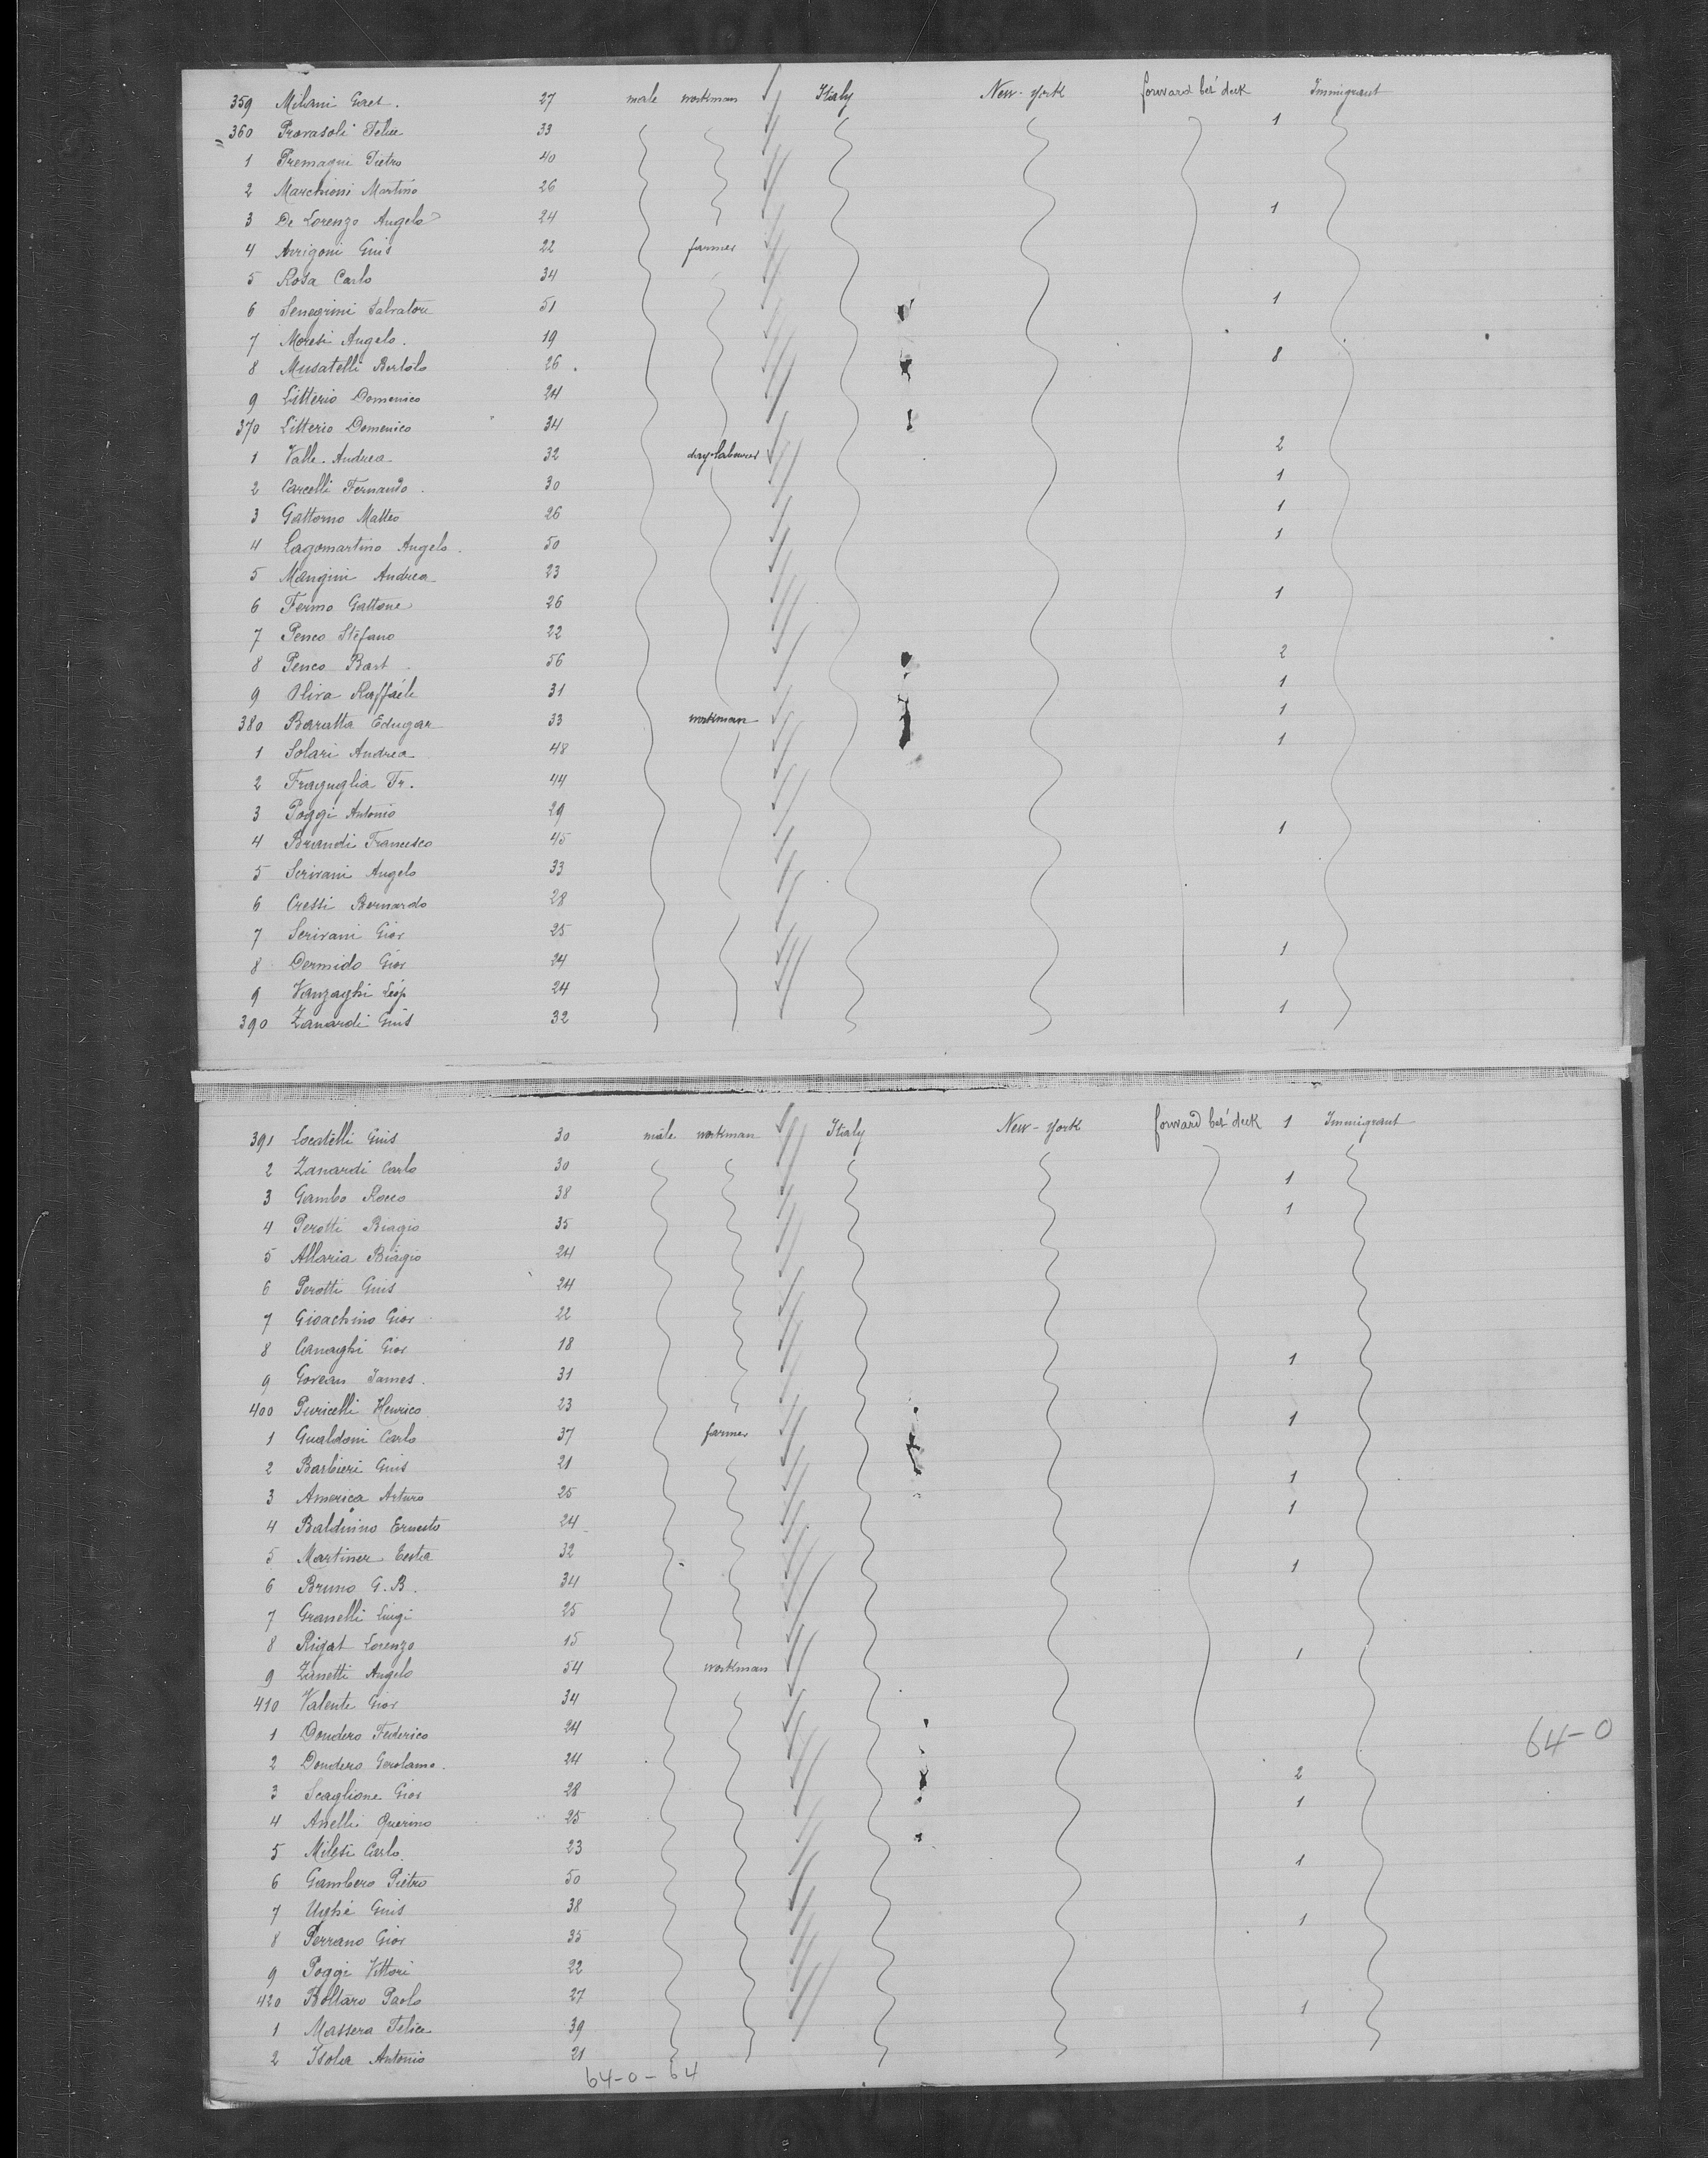 359 Milani Gaet. 27 male workman Italy New-York forward bet' deck Immigrant
360 Provasoli Felice 33 1
1 Premagni Pietro 40
2 Marchioni Martino 26
3 De Lorenzo Angelo 24 1
4 Arrigoni Guis 22 farmer
5 Rosa Carlo 34
6 Senegrini Salvatore 51 1
7 Moresi Angelo. 19
8 Musatelli Bertolo 26. 8
9 Litterio Domenico 24
370 Litterio Domenico 34
1 Valle. Andrea 32 day-labourer 2
2 Carcelli Fernando. 30 1
3 Gattorno Matteo 26 1
4 Lagomartino Angelo. 50 1
5 Mangini Andrea 23
6 Fermo Gattone 26 1
7 Penco Stefano 22
8 Penco Bart. 56 2
9 Oliva Raffaele 31 1
380 Baratta Edugar 33 workman 1
1 Solari Andrea 48 1
2 Fraguglia Fr. 44
3 Poggi Antonio 29
4 Brandi Francesco 45 1
5 Scrivani Angelo 33
6 Cressi Bernardo 28
7 Scrivani Giov 25
8 Dermido Giov 24 1
9 Vanzaghi Leop 24
390 Zanardi Guis 32 1
391 Locatelli Guis 30 male workman Italy New-York forward bet' deck 1 Immigrant
2 Zanardi Carlo 30 1
3 Gambo Rocco 38 1
4 Perotti Biagio 35
5 Allaria Biagio 24
6 Perotti Guis 24
7 Gioachino Giov 22
8 Canaghi Giov 18 1
9 Gorean James. 31
400 Puricelli Henrico 23 1
1 Gualdoni Carlo 37 farmer
2 Barbieri Guis 21 1
3 America Arturo 25 1
4 Balduino Ernesto 24
5 Martiner Testa 32 1
6 Bruno G. B. 34
7 Granelli Luigi 25
8 Rigat Lorenzo 15 1
9 Zanetti Angelo 54 workman
410 Valente Giov 34
1 Dondero Federico 24
64-0
2 Dondero Gerolamo. 24 2
3 Scaglione Giov 28 1
4 Anelli Querino 25
5 Milesi Carlo. 23 1
6 Gambero Pietro 50
7 Ughe Guis 38 1
8 Perrano Giov 35
9 Poggi Vittori 22
420 Boltaro Paolo 27 1
1 Massera Felice 39
2 Isola Antonio 21
64-0-64